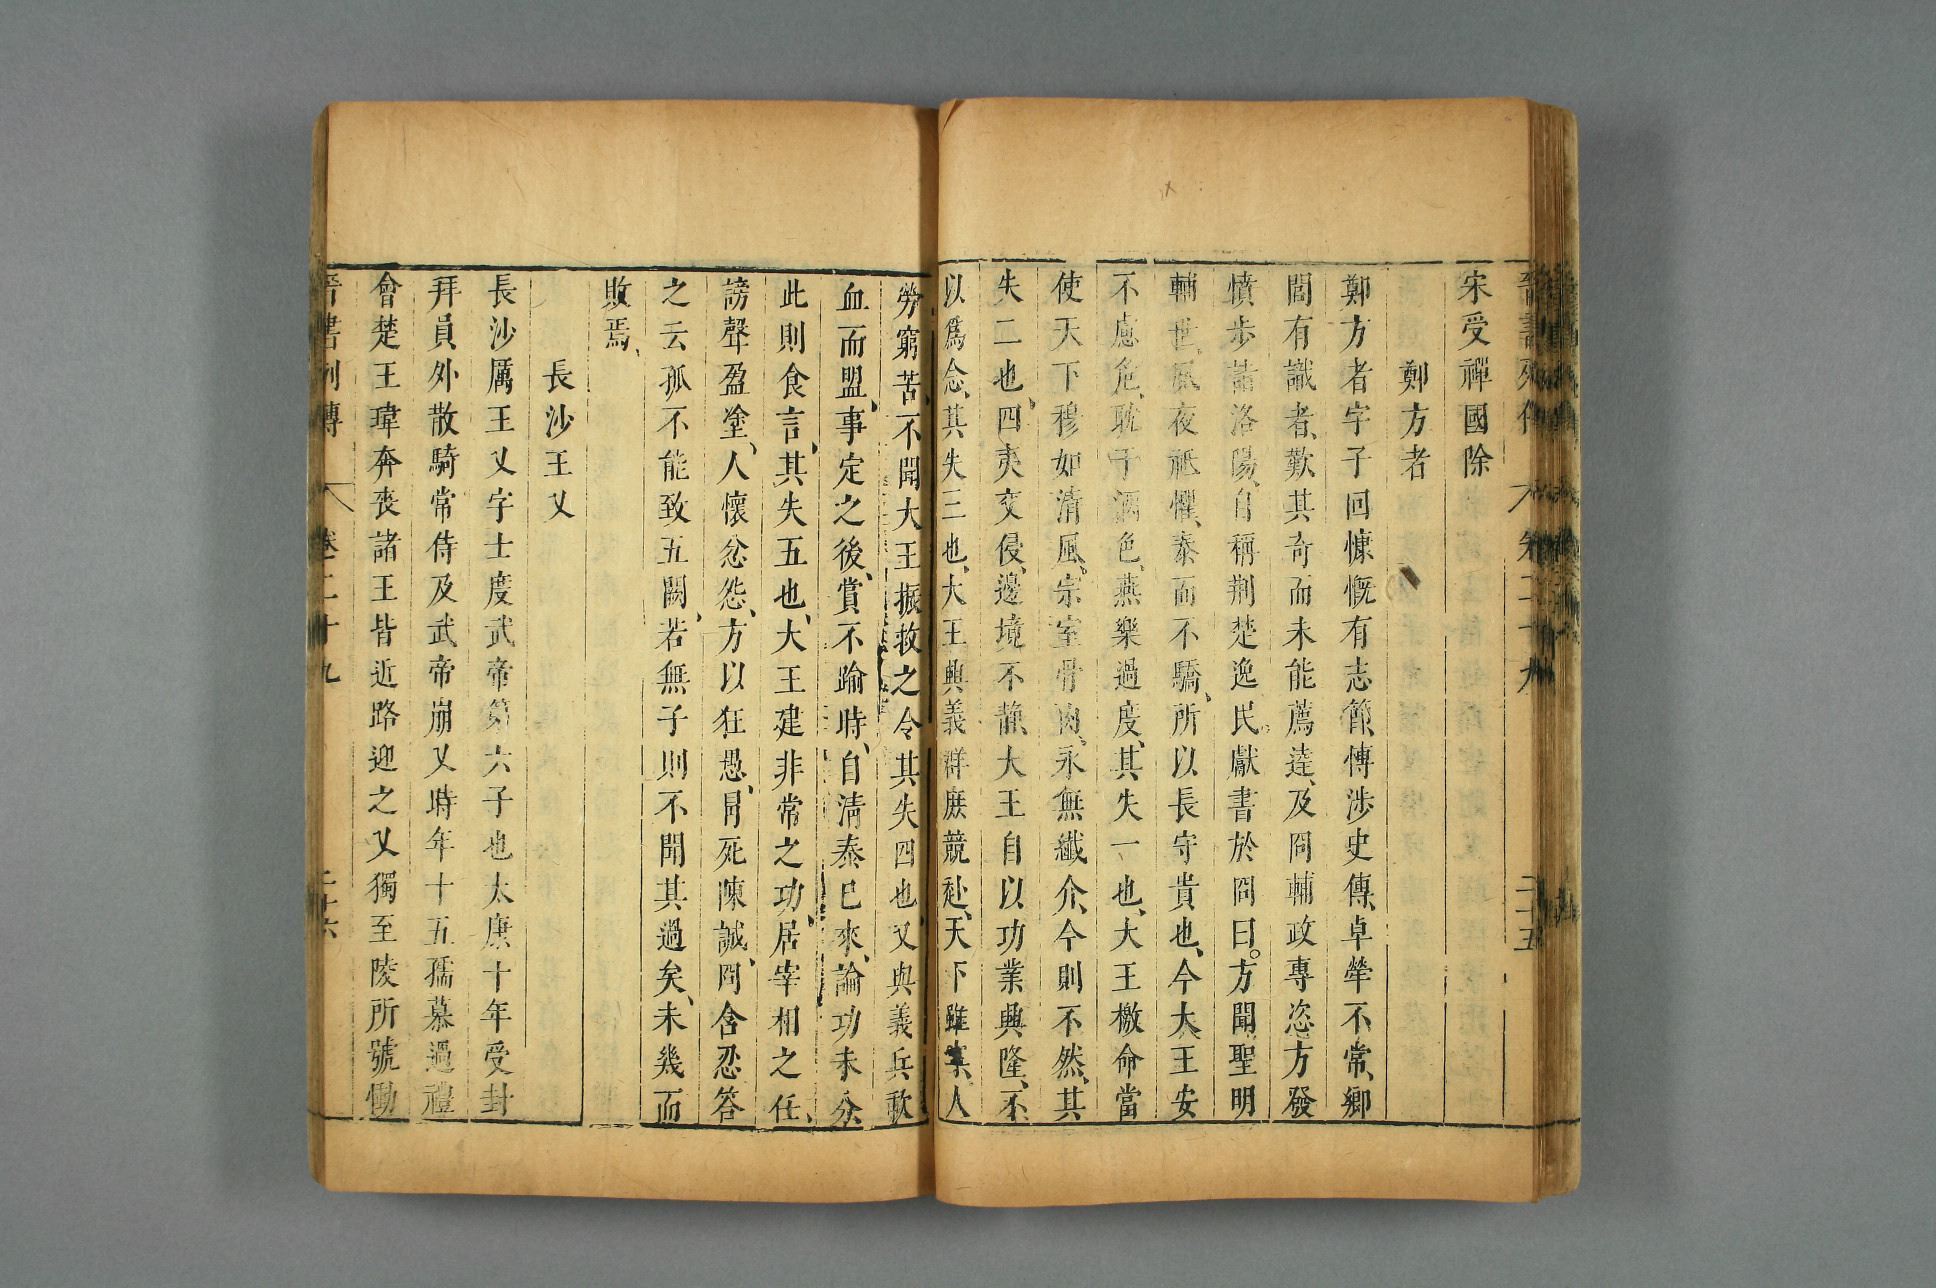 宋受禪國除
鄭方者
鄭方者字子回慷慨有志節愽涉史傳卓犖不常鄉
閭有識者歎其奇而未能薦達及冏輔政專恣方發
憤步詣洛陽自稱荆楚逸民獻書於冏曰方聞聖明
輔世夙夜祗懼泰而不驕所以長守貴也今大王安
不慮危耽于酒色燕樂過度其失一也大王檄命當
使天下穆如清風宗室骨肉永無纖介今則不然其
失二也四夷交侵邊境不静大王自以功業興隆不
以爲念其失三也大王興義群庶競赴天下雖寧人
勞窮苦不聞大王振救之令其失四也又與義兵歃
血而盟事定之後賞不踰時自清泰已來論功未分
此則食言其失五也大王建非常之功居宰相之任
謗聲盈塗人懷忿怨方以狂愚冐死陳誠冏含忍答
之云孤不能致五闕若無子則不聞其過矣未幾而
敗焉
長沙王乂
長沙厲王乂字士度武帝第六子也太康十年受封
拜員外散騎常侍及武帝崩乂時年十五孺慕過禮
會楚王瑋奔喪諸王皆近路迎之乂獨至陵所號慟
晉書列傳 卷二十九 二十六